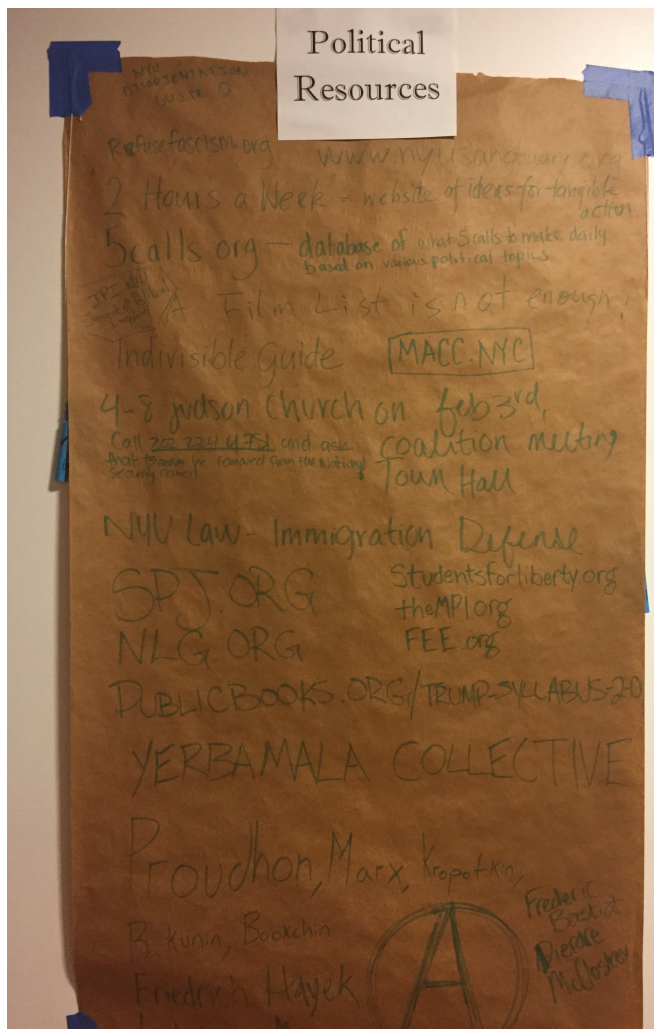 Political
Resources
NYU
DISORIENTATION
GUIDE
Refusefascism.org
www.nyusanctuary.org
2 Hours a Week - website of ideas for tangible
action.
5calls org — database of what 5 calls to make daily
based on various political topics
A Film List is not enough!
Indivisible Guide
MACC.NYC
4-8 Judson Church on feb 3rd,
coalition meeting
Town Hall
Call 202 224 4751 and ask
that Bannon be removed from the National
Security council
NYU Law - Immigration Defense
SPJ.ORG
NLG.ORG
Studentsforliberty.org
theMPI.org
FEE.org
PUBLICBOOKS.ORG/TRUMP-SYLLABUS-2-0
YERBAMALA COLLECTIVE
Proudhon, Marx, Kropotkin,
B kunin, Bookchin
Friedrich Hayek
A
Frederic
Bastiat
Dierdre
McCloskey